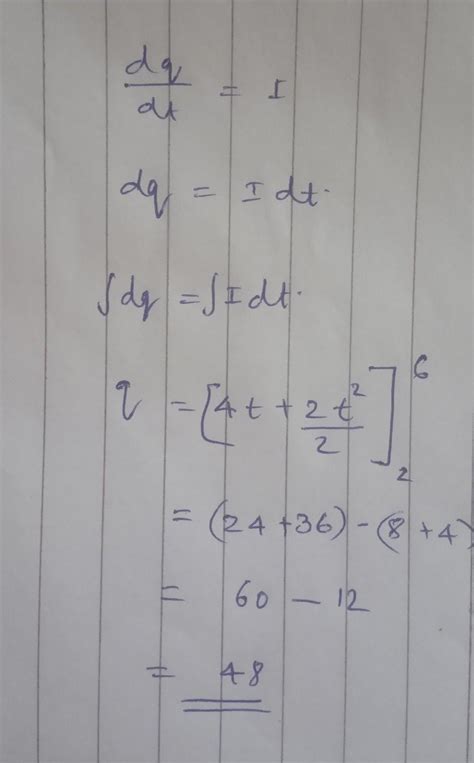 dq/dt = I
dq = I dt.
∫dq = ∫I dt.
q = [4t + 2t²/2]₂⁶
= (24 + 36) - (8 + 4)
= 60 - 12
= 48